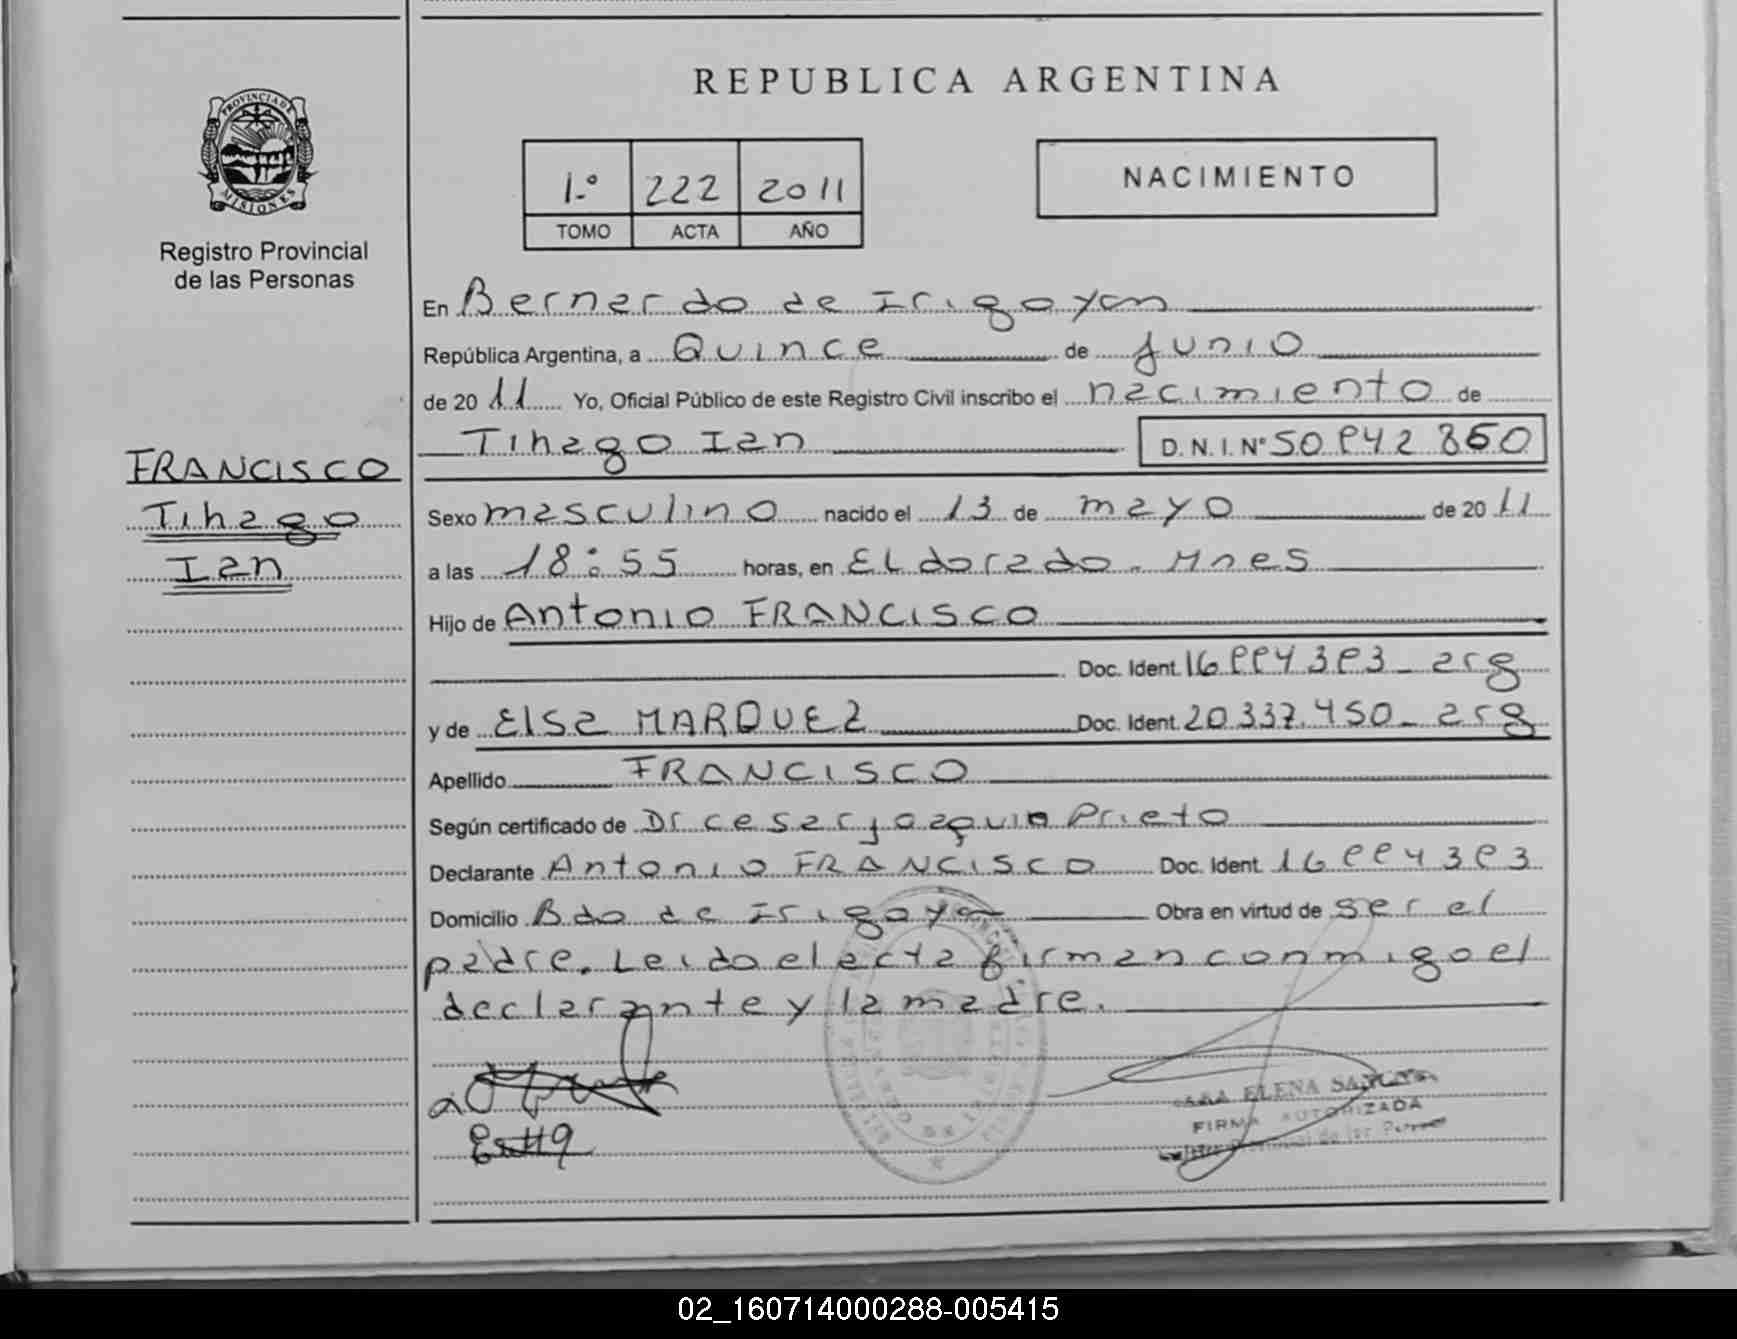 REPUBLICA ARGENTINA
PROVINCIA DE MISIONES
Registro Provincial
de las Personas
1.º 222 2011
TOMO ACTA AÑO
NACIMIENTO
En Bernardo de Irigoyen
República Argentina, a Quince de Junio
de 2011 Yo, Oficial Público de este Registro Civil inscribo el nacimiento de
Tihago Ian D.N.I. Nº 50.942.860
FRANCISCO
Tihago
Ian
Sexo masculino nacido el 13 de mayo de 2011
a las 18:55 horas, en Eldorado. Mnes
Hijo de Antonio FRANCISCO
Doc. Ident. 16.994.393_ arg
y de Elsa MARQUEZ Doc. Ident. 20.337.450_ arg
Apellido FRANCISCO
Según certificado de Dr cesar joaquin Prieto
Declarante Antonio FRANCISCO Doc. Ident. 16.994.393
Domicilio Bdo de Irigoyen Obra en virtud de ser el
padre. Leida el acta firman conmigo el
declarante y la madre.
ELENA
FIRMA AUTORIZADA
02_160714000288-005415